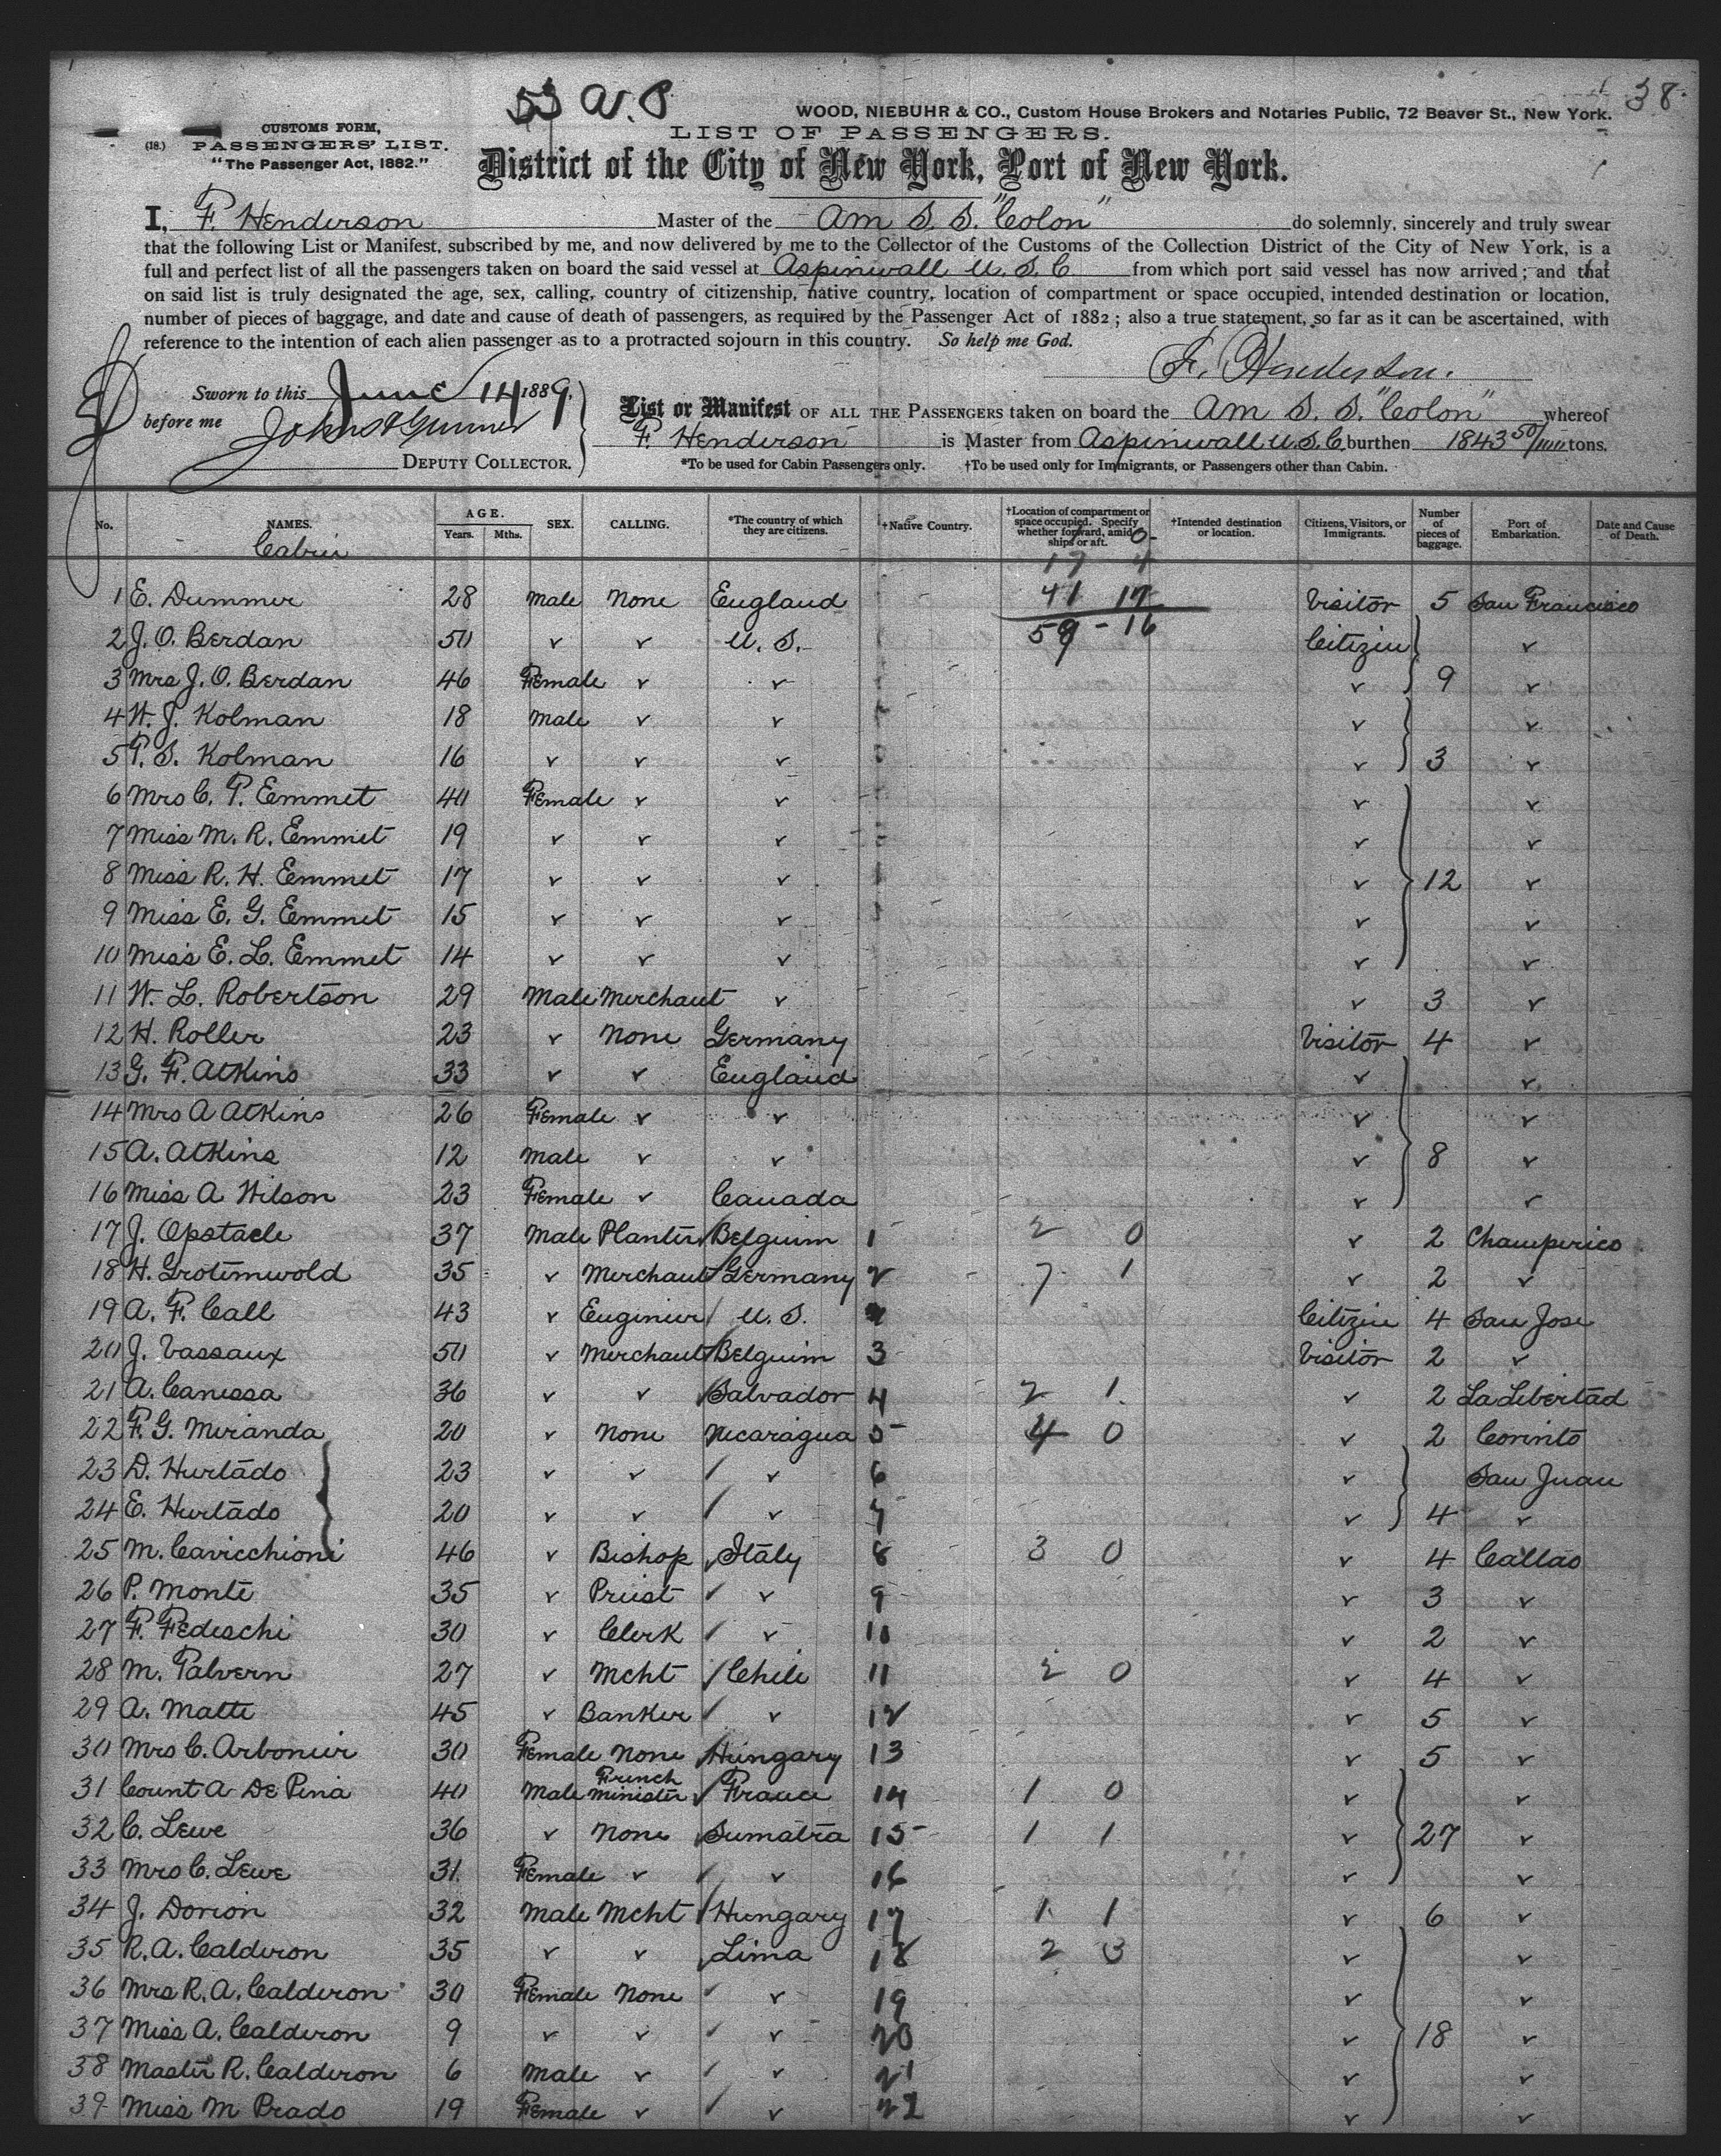 53 A. P.
38.
WOOD, NIEBUHR & CO., Custom House Brokers and Notaries Public, 72 Beaver St., New York.
CUSTOMS FORM,
LIST OF PASSENGERS.
(18.) PASSENGERS' LIST.
"The Passenger Act, 1882."
District of the City of New York, Port of New York.
I, F. Henderson Master of the Am S. S. "Colon" do solemnly, sincerely and truly swear
that the following List or Manifest, subscribed by me, and now delivered by me to the Collector of the Customs of the Collection District of the City of New York, is a
full and perfect list of all the passengers taken on board the said vessel at Aspinwall U. S. C from which port said vessel has now arrived; and that
on said list is truly designated the age, sex, calling, country of citizenship, native country, location of compartment or space occupied, intended destination or location,
number of pieces of baggage, and date and cause of death of passengers, as required by the Passenger Act of 1882; also a true statement, so far as it can be ascertained, with
reference to the intention of each alien passenger as to a protracted sojourn in this country. So help me God.
F. Henderson.
Sworn to this June 14 1889,
before me
DEPUTY COLLECTOR.
List or Manifest OF ALL THE PASSENGERS taken on board the Am S. S. "Colon" whereof
F Henderson is Master from Aspinwall U.S.C. burthen 1843 50/100 tons.
*To be used for Cabin Passengers only. †To be used only for Immigrants, or Passengers other than Cabin.
No. NAMES. AGE. Years. Mths. SEX. CALLING. *The country of which they are citizens. †Native Country. †Location of compartment or space occupied. Specify whether forward, amidships or aft. †Intended destination or location. Citizens, Visitors, or Immigrants. Number of pieces of baggage. Port of Embarkation. Date and Cause of Death.
Cabin
17 4
1 E. Dummer 28 Male None England 41 17 Visitor 5 San Francisco
2 J. O. Berdan 50 v v U. S. 58 - 16 Citizen v
3 Mrs J. O. Berdan 46 Female v v v 9 v
4 W. J. Kolman 18 Male v v v v
5 P. S. Kolman 16 v v v v 3 v
6 Mrs C. P. Emmet 40 Female v v v v
7 Miss M. R. Emmet 19 v v v v v
8 Miss R. H. Emmet 17 v v v v 12 v
9 Miss E. G. Emmet 15 v v v v v
10 Miss E. L. Emmet 14 v v v v v
11 W. L. Robertson 29 Male Merchant v v 3 v
12 H. Roller 23 v None Germany Visitor 4 v
13 G. F. Atkins 33 v v England v v
14 Mrs A Atkins 26 Female v v v v
15 A. Atkins 12 Male v v v 8 v
16 Miss A Wilson 23 Female v Canada v v
17 J. Opstaele 37 Male Planter Belguim 1 2 0 v 2 Champerico
18 H. Grotemwold 35 v Merchant Germany 2 7 1 v 2 v
19 A. F. Call 43 v Engineer U. S. Citizen 4 San Jose
20 J. Vassaux 50 v Merchant Belguim 3 Visitor 2 v
21 A. Canessa 36 v v Salvador 4 2 1 v 2 La Libertad
22 F. G. Miranda 20 v None Nicaragua 5 4 0 v 2 Corinto
23 D. Hurtado 23 v v v 6 v San Juan
24 E. Hurtado 20 v v v 7 v 4 v
25 M. Cavicchioni 46 v Bishop Italy 8 3 0 v 4 Callao
26 P. Monte 35 v Priest v 9 v 3 v
27 F. Fedeschi 30 v Clerk v 10 v 2 v
28 M. Palvern 27 v Mcht Chile 11 2 0 v 4 v
29 A. Matte 45 v Banker v 12 v 5 v
30 Mrs C. Arbonier 30 Female None Hungary 13 v 5 v
31 Count A De Pina 40 Male French Minister France 14 1 0 v v
32 C. Lewe 36 v None Sumatra 15 1 1 v 27 v
33 Mrs C. Lewe 31 Female v v 16 v v
34 J. Dorion 32 Male Mcht Hungary 17 1 1 v 6 v
35 R. A. Calderon 35 v v Lima 18 2 3 v v
36 Mrs R. A. Calderon 30 Female None v 19 v v
37 Miss A. Calderon 9 v v v 20 v 18 v
38 Master R. Calderon 6 Male v v 21 v v
39 Miss M Prado 19 Female v v 22 v v